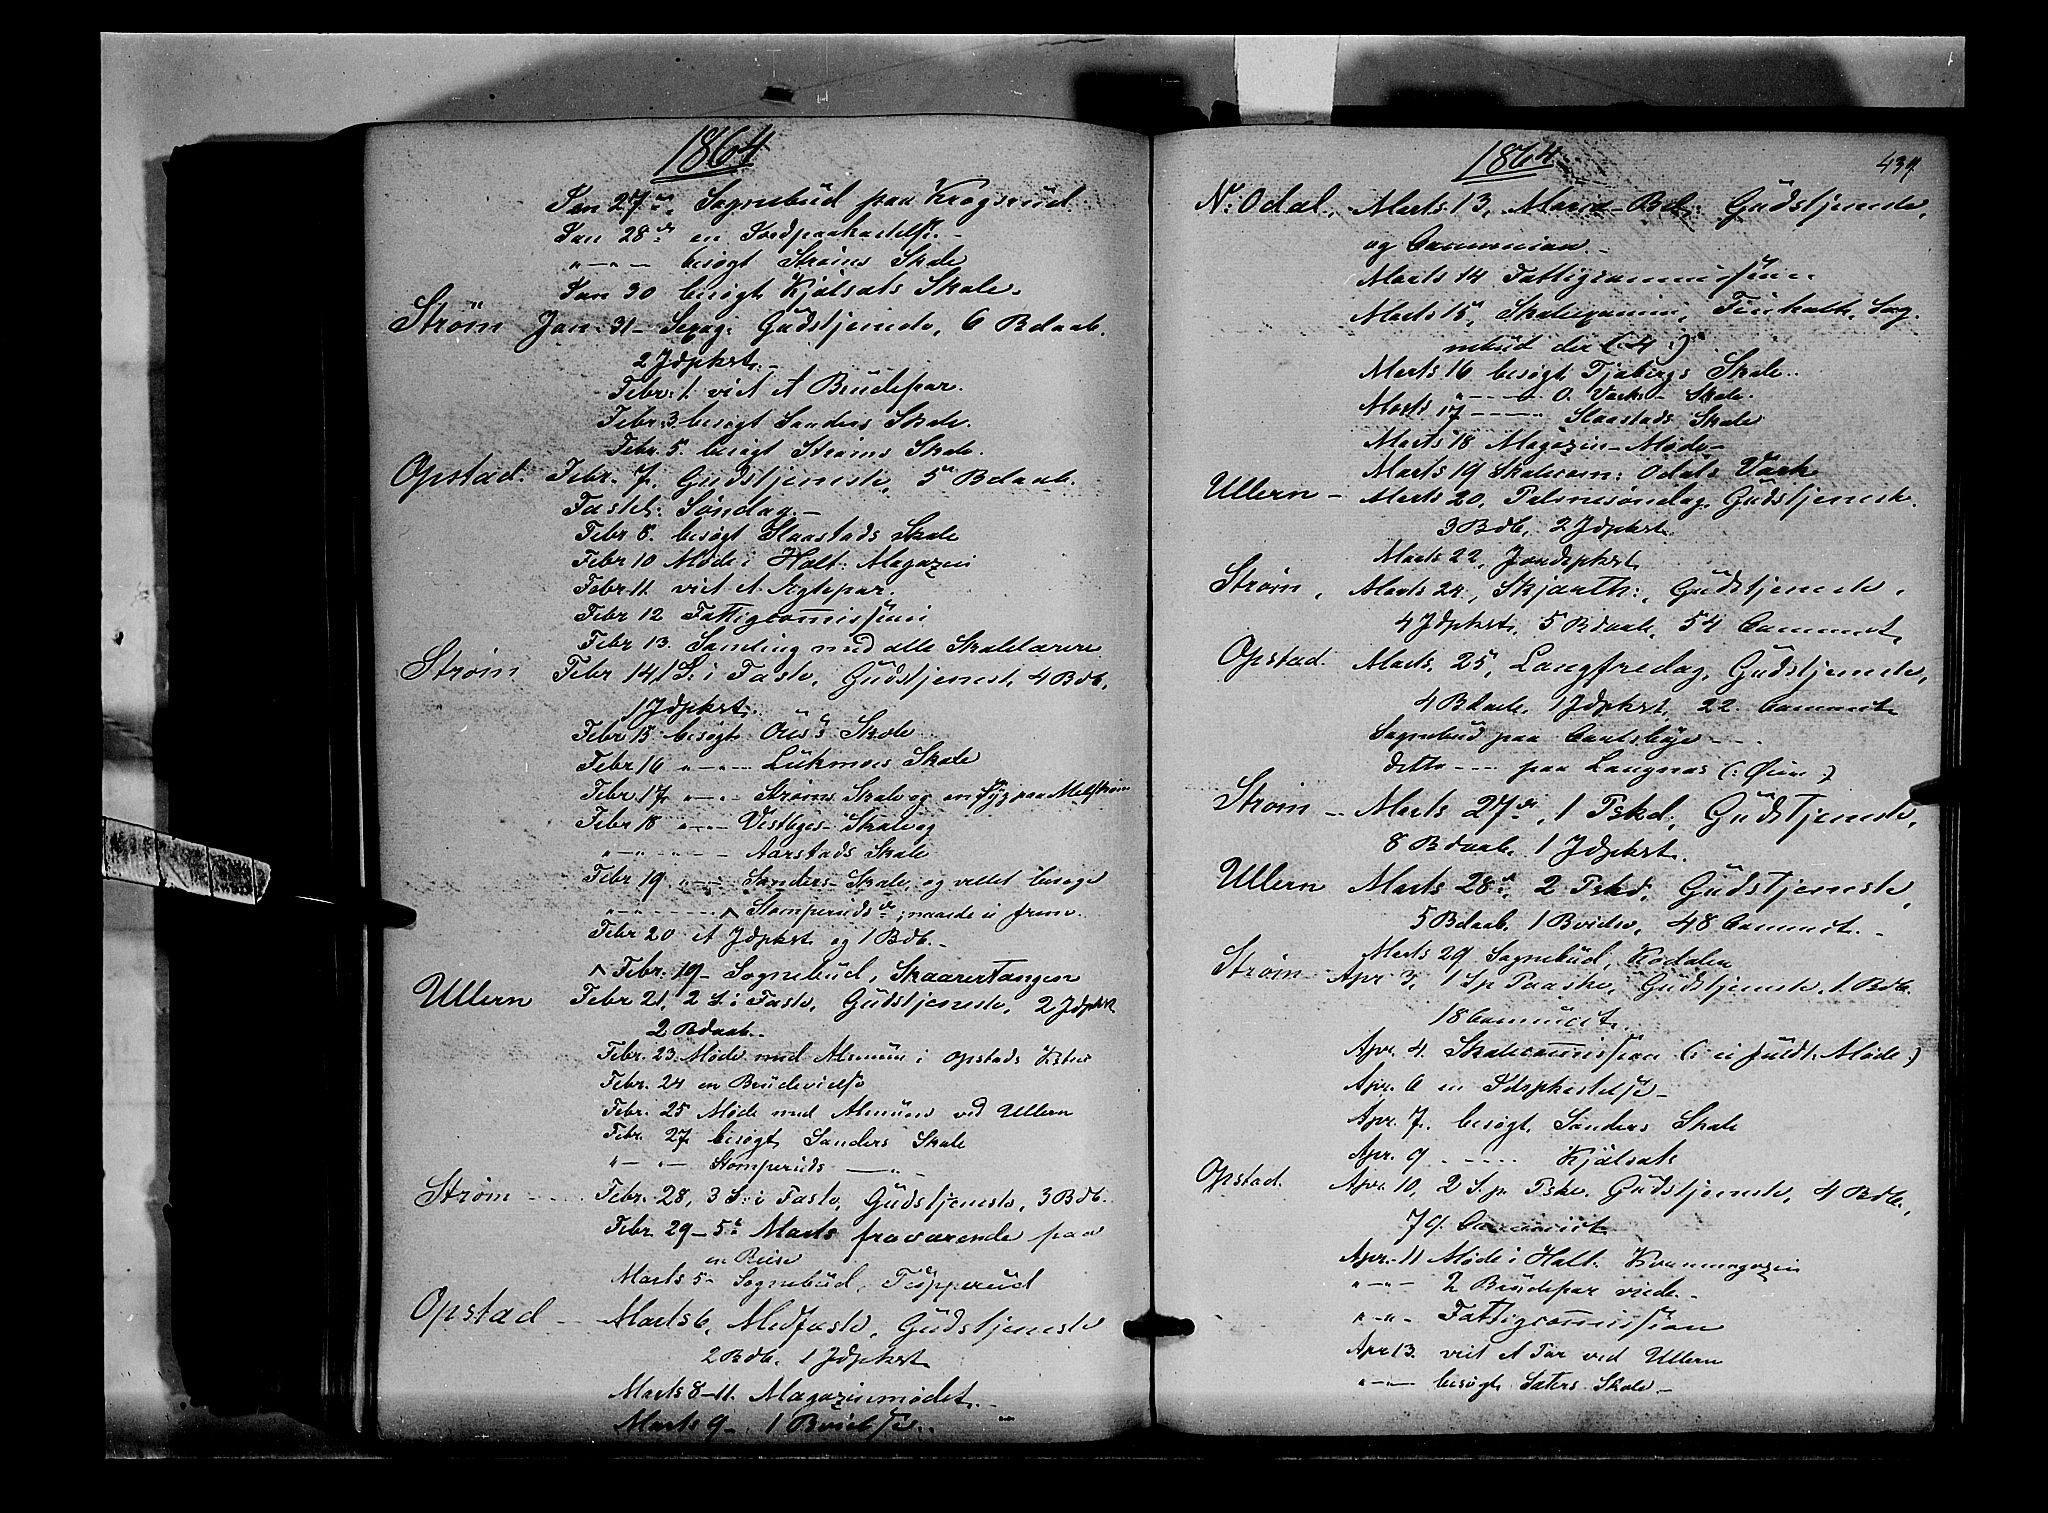 1864
Jan 27de, Sognebud paa Krogsrud
Jan 28de en Jordpaakastelse
" — " — besøgt Strøms Skole
Jan 30 besøgt Kjølsets Skole.
Strøm Jan. 31 – Sexag: Gudstjeneste, 6 Bdaab.
2 Jdpkst.
Febr. 1. viet et Brudepar.
Febr. 3. besøgt Sanders Skole.
Febr. 5. besøgt Strøms Skole.
Opstad. Febr. 7, Gudstjeneste, 5 Bdaab.
Fastel: Søndag. –
Febr 8. besøgt Slaastads Skole
Febr 10 Møde i Holt: Magazin
Febr 11. viet et Ægtepar.
Febr 12 Fattigcomission
Febr 13. Samling med alle Skolelærere
Strøm Febr 14, 1 S: i Faste, Gudstjenest, 4 Bdb.
1 Jdpkst.
Febr 15 besøgt Ous's Skole
Febr 16 " — " — Lukmoes Skole
Febr. 17 " — " - Strøms Skole og en Syg paa Melstrøm
Febr 18 " — " — Vestbyes Skole og
" — " — " — Aarstads Skole
Febr 19 " — Sanders Skole, og villet besøge
" — " — Stomperuds do, naaede ei frem.
Febr 20 et Jdpkst og 1 Bdb. –
^ Febr. 19 – Sognebud, Skaarertangen
Ullern Febr 21, 2 S: i Faste, Gudstjeneste, 2 Jdpkst
2 Bdaab.
Febr. 23 Møde med Almuen i Opstads Kster
Febr. 24 en Brudevielse
Febr. 25 Møde med Almuen ved Ullern
Febr. 27 besøgt Sanders Skole
" — " — Stomperuds — " –
Strøm - - - Febr. 28, 3 S: i Faste, Gudstjeneste, 3 Bdb.
Febr. 29 – 5te Marts fraværende paa
en Reise
Marts 5 – Sognebud, Tupperud
Opstad — Marts 6, Midfaste, Gudstjeneste
2 Bdb. 1 Jdpkst
Marts 8 – 11. Magazinmødet. –
Marts 9 –. 1 Bvielse.
1864
N: Odal. Marts 13, Mariæ Bd: Gudstjeneste,
og Communion. –
Marts 14 Fattigcommission
Marts 15, Skoleexamen, Finholt, Sog-
nebud der (: 4 :)
Marts 16 besøgt Tjabergs Skole.
" — " — O. Værks – Skole.
Marts 17 - - - - Slaastads Skole
Marts 18 Magazin-Møde –
Marts 19 Skolecom: Odals Værk
Ullern – Marts 20, Palmesøndag, Gudstjeneste.
3 Bdb, 2 Jdpkst.
Marts 22, Jordpkst
Strøm, Marts 24, Skjærth:, Gudstjeneste,
4 Jdpkst. 5 Bdaab, 54 Communt.
Opstad. Marts, 25, Langfredag, Gudstjeneste,
4 Bdaab, 1 Jdpkst, 22 Communt
Sognebud paa
ditto - - - paa Langnæs
Strøm – Marts 27de, 1 Pskd, Gudstjeneste,
8 Bdaab, 1 Jdpkst.
Ullern Marts 28de, 2 Pskd, Gudstjeneste,
5 Bdaab, 1 Bvielse, 48 Communt. –
Marts 29 Sognebud, Kodalen
Strøm – Apr. 3, 1 S p Paaske, Gudstjeneste, 1 Bdb.
18 Communt.
Apr. 4. Skolecomission (: ei fuldt. Møde :)
Apr. 6 en Jdspkastelse –
Apr. 7. besøgt Sanders Skole
Apr. 9 - - - - Kjølsets
Opstad. Apr. 10, 2 S. p. Pske. Gudstjeneste, 4 Bdb.,
79. Communt
Apr. 11 Møde i Holt. Kornmagazin
" — " — 2 Brudepar viede. –
" — " – Fattigcomission
Apr 13. viet et Par ved Ullern
" — " — besøgt Sæters Skole –